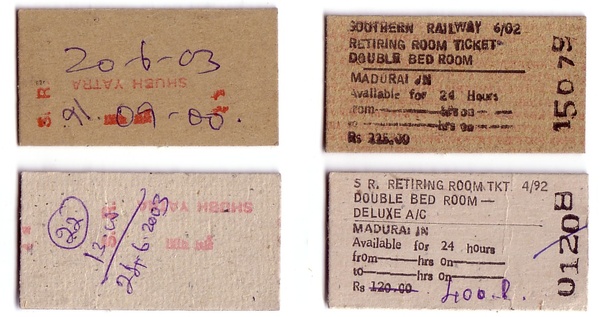 20-6-03
SHUBH YATRA
S. R.
09-00.
SOUTHERN RAILWAY 6/02
RETIRING ROOM TICKET
DOUBLE BED ROOM
MADURAI JN
Available for 24 Hours
from——hrs on——
to——hrs on——
Rs 225.00
1507
22
SHUBH YATRA
24-6-2003
S R. RETIRING ROOM TKT 4/92
DOUBLE BED ROOM—
DELUXE A/C
MADURAI JN
Available for 24 hours
from——hrs on——
to——hrs on——
Rs 120.00
0120B